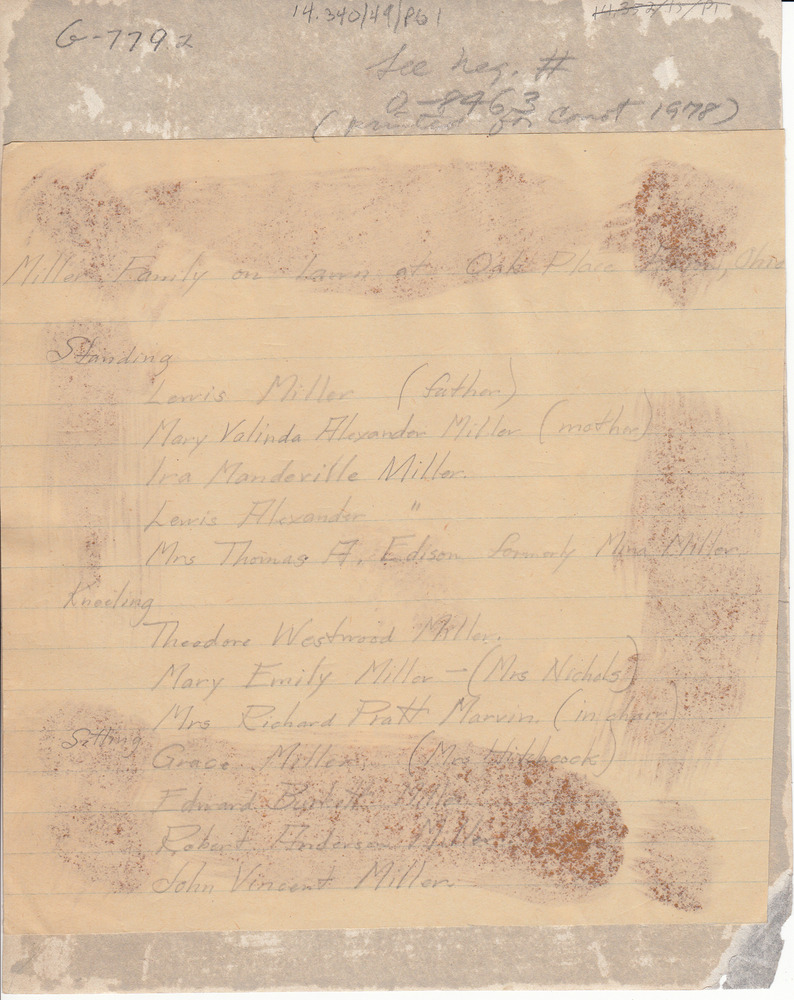 14.340/49/P61
G-7792
See Neg. #
0-8463
(printed for Const 1978)
Miller Family on Lawn at Oak Place Akron, Ohio
Standing
Lewis Miller (father)
Mary Valinda Alexander Miller (mother)
Ira Mandeville Miller.
Lewis Alexander "
Mrs Thomas A. Edison formerly Mina Miller
Kneeling
Theodore Westwood Miller.
Mary Emily Miller - (Mrs Nichols)
Mrs Richard Pratt Marvin. (in chair)
Sitting
Grace Miller. (Mrs Hitchcock)
Edward Burkett Miller
Robert Anderson Miller
John Vincent Miller